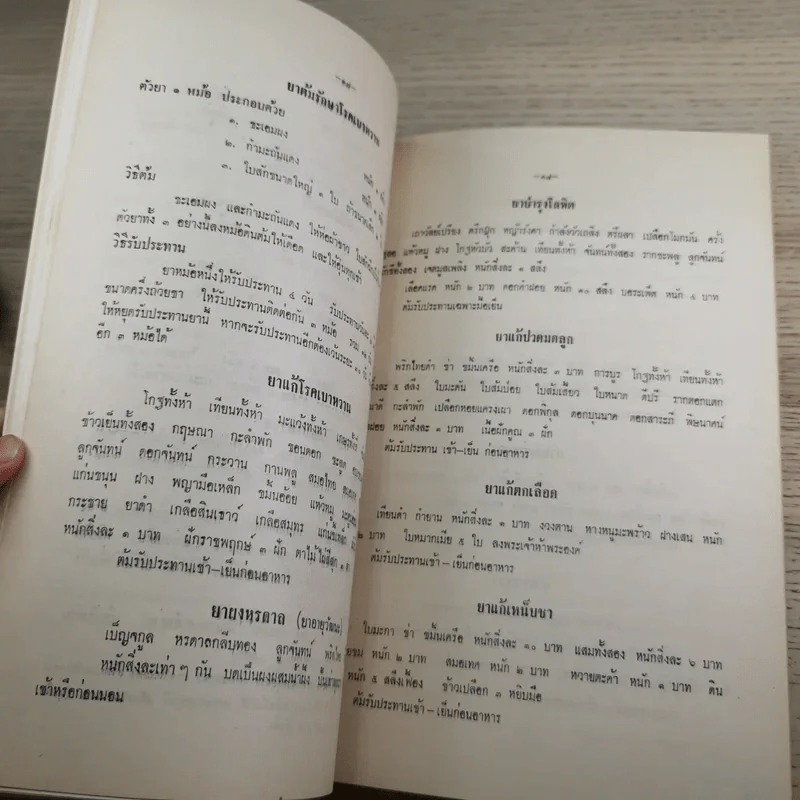 –๑๘–
ยาต้มรักษาโรคเบาหวาน
ตัวยา ๑ หม้อ ประกอบด้วย
๑. ชะเอมผง
๒. กำมะถันแดง
๓. ใบสักขนาดใหญ่ ๑ ใบ
วิธีต้ม
ชะเอมผง และกำมะถันแดง ให้ห่อผ้าขาว
ตัวยาทั้ง ๓ อย่างนี้ลงหม้อดินต้มให้เดือด และให้อุ่นทุกเช้า
วิธีรับประทาน
ยาหม้อหนึ่งให้รับประทาน ๕ วัน
ขนาดครึ่งถ้วยชา ให้รับประทานติดต่อกัน ๓ หม้อ
ให้หยุดรับประทานยานี้ หากจะรับประทานอีกต้องเว้นระยะ
อีก ๓ หม้อได้
ยาแก้โรคเบาหวาน
โกฐทั้งห้า เทียนทั้งห้า มะแว้งทั้งห้า
ข้าวเย็นทั้งสอง กฤษณา กะลำพัก ขอนดอก ชะลูด
ลูกจันทน์ ดอกจันทน์ กระวาน กานพลู สมอไทย
แก่นขนุน ฝาง พญามือเหล็ก ขมิ้นอ้อย แห้วหมู
กระชาย ยาดำ เกลือสินเธาว์ เกลือสมุทร
หนักสิ่งละ ๑ บาท ฝักราชพฤกษ์ ๓ ฝัก ตาไม้ไผ่สีสุก
ต้มรับประทานเช้า–เย็นก่อนอาหาร
ยาผงหรดาล (ยาอายุวัฒนะ)
เบ็ญจกูล หรดาลกลีบทอง ลูกจันทน์
หนักสิ่งละเท่า ๆ กัน บดเป็นผงผสมน้ำผึ้ง
เช้าหรือก่อนนอน
–๑๙–
ยาบำรุงโลหิต
เถาวัลย์เปรียง ดรีกฏุก หญ้ารังกา กำลังวัวเถลิง ตรีผลา เปลือกโมกมัน ครั่ง
แห้วหมู ฝาง โกฐหัวบัว สะค้าน เทียนทั้งห้า จันทน์ทั้งสอง รากชะพลู ลูกจันทน์
เจตมูลเพลิง หนักสิ่งละ ๑ สลึง
เลือดแรด หนัก ๒ บาท ดอกคำฝอย หนัก ๑๐ สลึง บอระเพ็ด หนัก ๕ บาท
ต้มรับประทานเฉพาะมื้อเย็น
ยาแก้ปวดมดลูก
พริกไทยดำ ข่า ขมิ้นเครือ หนักสิ่งละ ๓ บาท การบูร โกฐทั้งห้า เทียนทั้งห้า
๕ สลึง ใบมะตัน ใบส้มป่อย ใบส้มเสี้ยว ใบหนาด ดีปรี รากตองแตก
กะลำพัก เปลือกหอยแครงเผา ดอกพิกุล ดอกบุนนาค ดอกสารภี พิษนาศน์
หนักสิ่งละ ๑ บาท เนื้อฝักคูณ ๓ ฝัก
ต้มรับประทาน เช้า–เย็น ก่อนอาหาร
ยาแก้ตกเลือด
เทียนดำ กำยาน หนักสิ่งละ ๑ บาท งวงตาล หางหนูมะพร้าว ฝางเสน หนัก
๒ บาท ใบหมากเมีย ๕ ใบ ลงพระเจ้าห้าพระองค์
ต้มรับประทานเช้า–เย็นก่อนอาหาร
ยาแก้เหน็บชา
ใบมะกา ข่า ขมิ้นเครือ หนักสิ่งละ ๑๐ บาท แสมทั้งสอง หนักสิ่งละ ๖ บาท
หนัก ๒ บาท สมอเทศ หนัก ๒ บาท หวายตะค้า หนัก ๑ บาท ดิน
หนัก ๕ สลึงเฟื้อง ข้าวเปลือก ๓ หยิบมือ
ต้มรับประทานเช้า–เย็นก่อนอาหาร